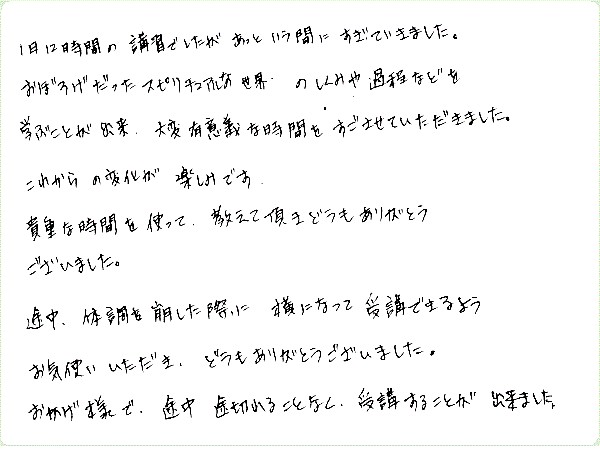 1日12時間の講習でしたがあっという間にすぎていきました。
おぼろげだったスピリチュアルな世界のしくみや過程などを
学ぶことが出来、大変有意義な時間をすごさせていただきました。
これからの変化が楽しみです.
貴重な時間を使って、教えて頂きどうもありがとう
ございました。
途中、体調を崩した際に横になって受講できるよう
お気使いいただき、どうもありがとうございました。
おかげ様で、途中途切れることなく、受講することが出来ました。